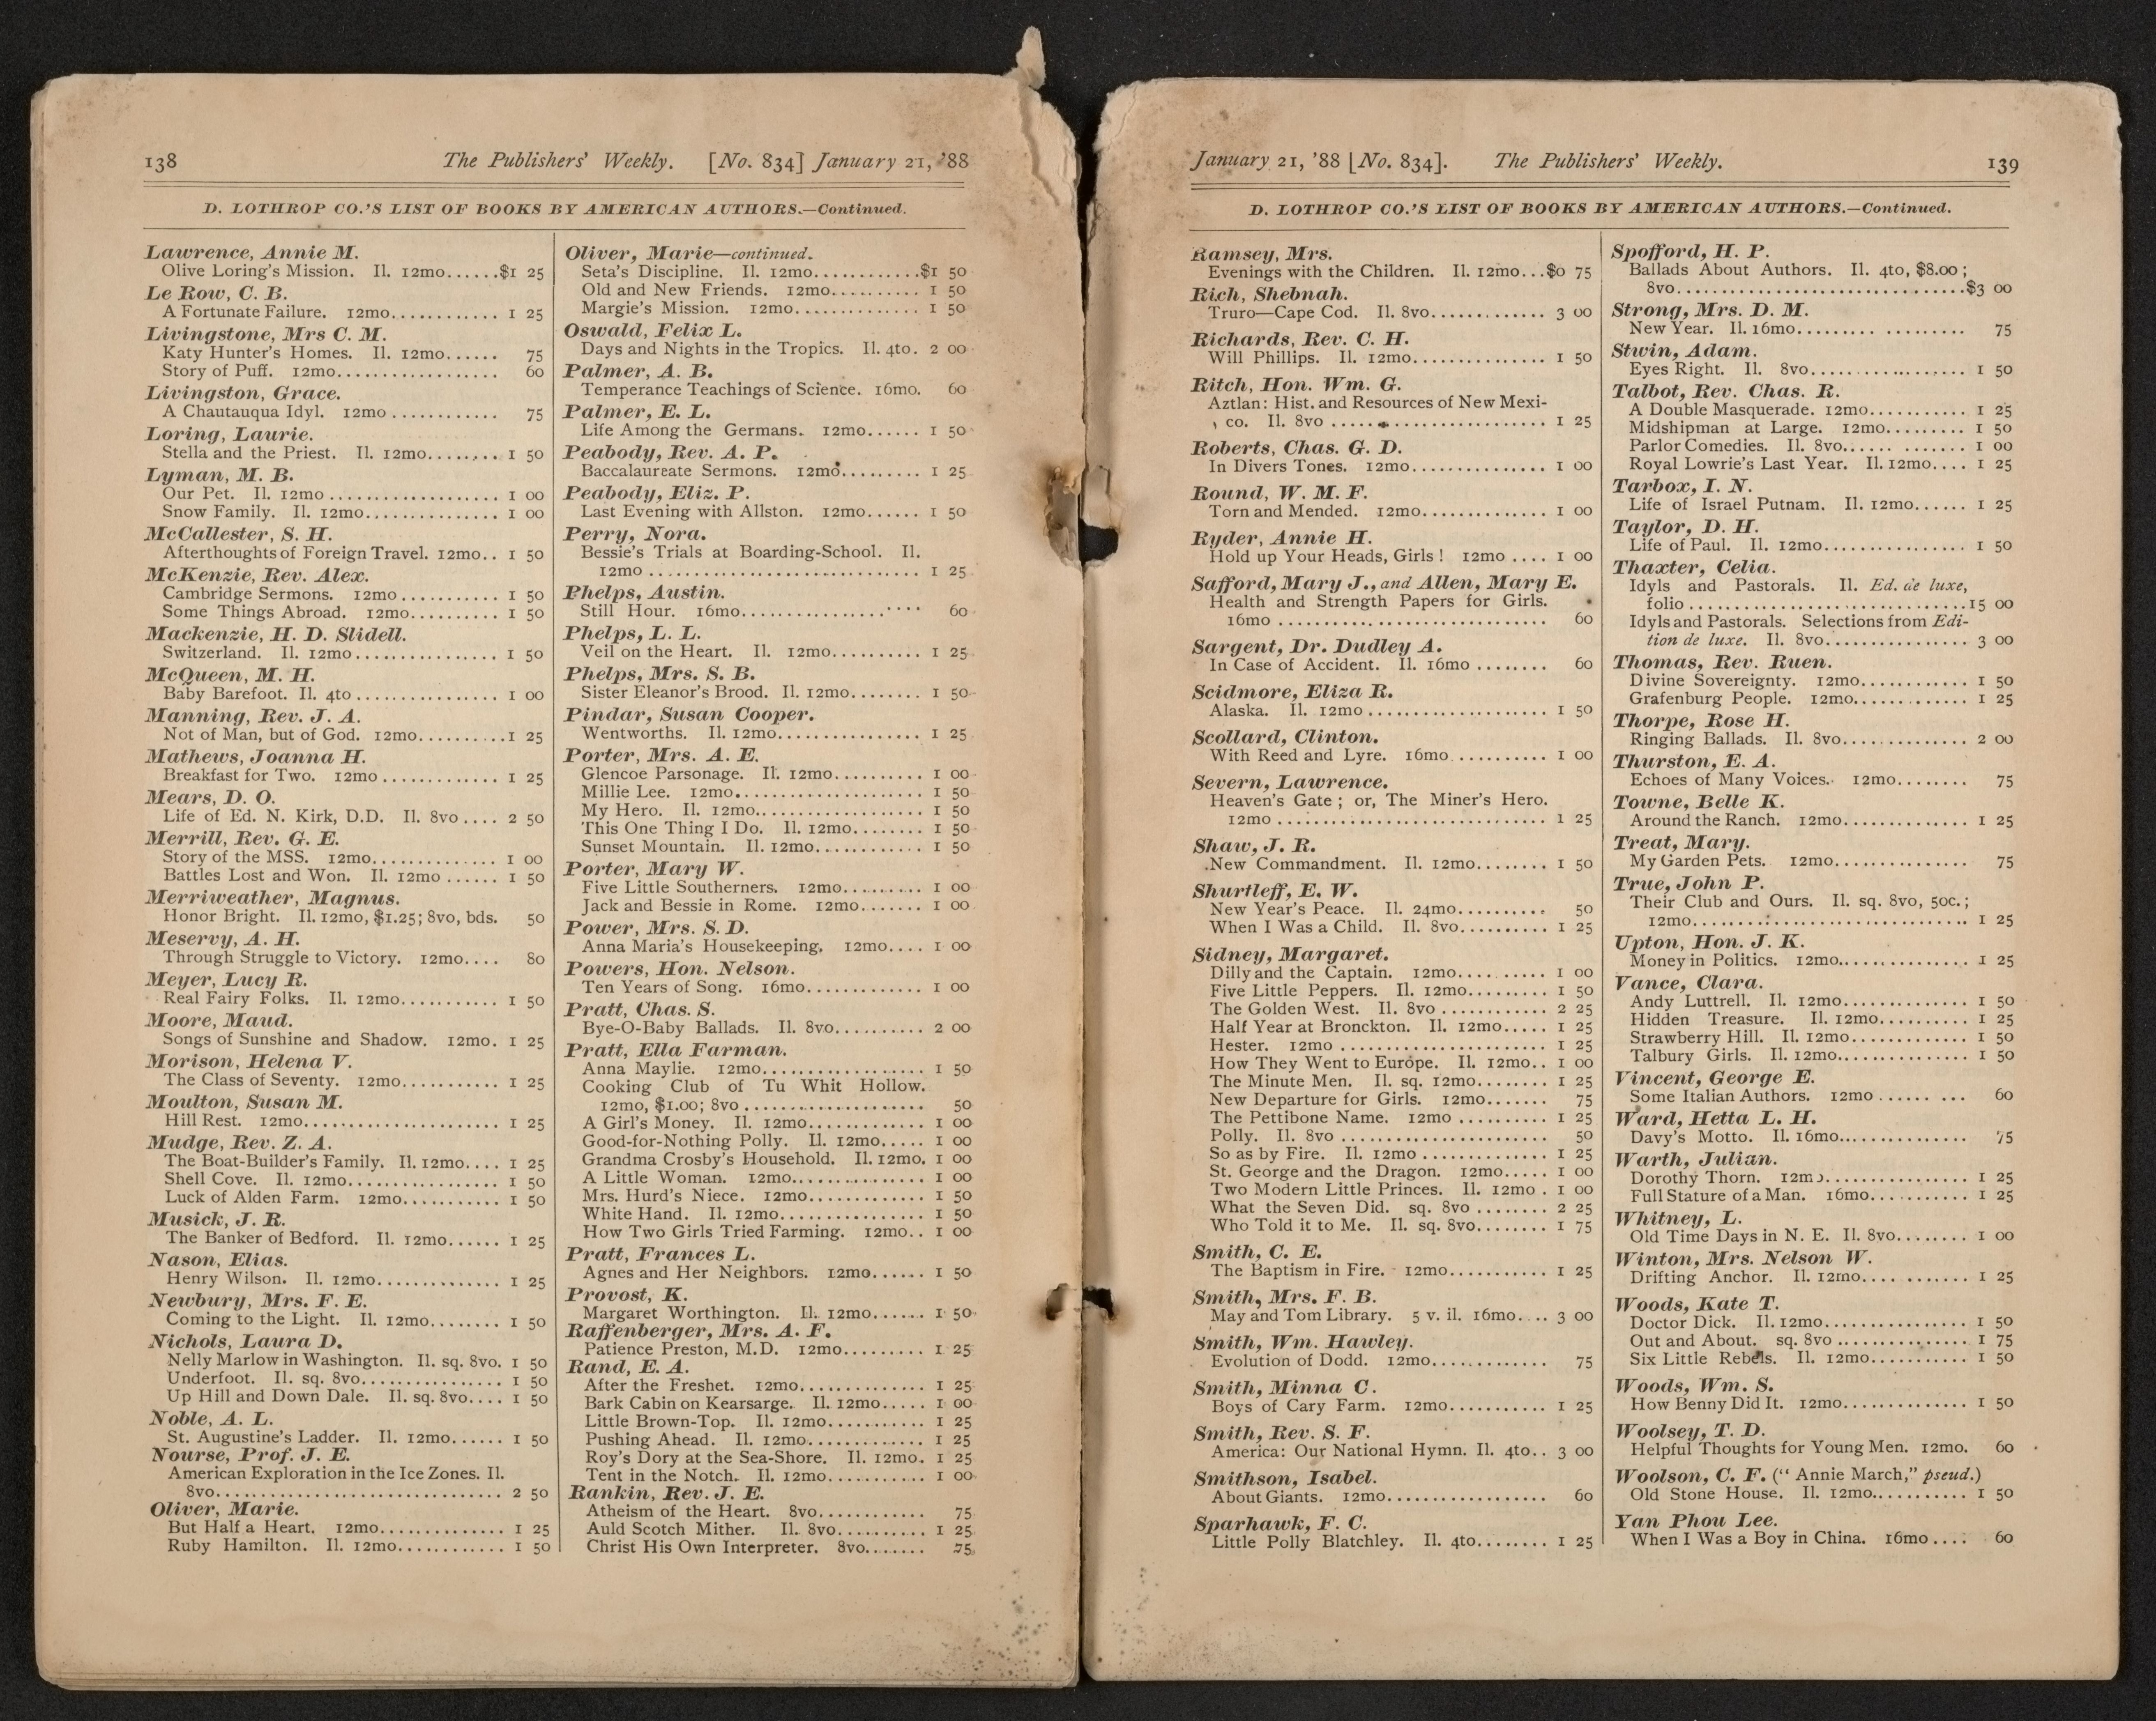 138 The Publishers' Weekly. [No. 834] January 21, '88
D. LOTHROP CO.'S LIST OF BOOKS BY AMERICAN AUTHORS.—Continued.
Lawrence, Annie M.
Olive Loring's Mission. Il. 12mo......$1 25
Le Row, C. B.
A Fortunate Failure. 12mo............ 1 25
Livingstone, Mrs C. M.
Katy Hunter's Homes. Il. 12mo...... 75
Story of Puff. 12mo................. 60
Livingston, Grace.
A Chautauqua Idyl. 12mo ............ 75
Loring, Laurie.
Stella and the Priest. Il. 12mo........ 1 50
Lyman, M. B.
Our Pet. Il. 12mo ................... 1 00
Snow Family. Il. 12mo............... 1 00
McCallester, S. H.
Afterthoughts of Foreign Travel. 12mo.. 1 50
McKenzie, Rev. Alex.
Cambridge Sermons. 12mo ........... 1 50
Some Things Abroad. 12mo.......... 1 50
Mackenzie, H. D. Slidell.
Switzerland. Il. 12mo................ 1 50
McQueen, M. H.
Baby Barefoot. Il. 4to ................ 1 00
Manning, Rev. J. A.
Not of Man, but of God. 12mo..........1 25
Mathews, Joanna H.
Breakfast for Two. 12mo ............. 1 25
Mears, D. O.
Life of Ed. N. Kirk, D.D. Il. 8vo.... 2 50
Merrill, Rev. G. E.
Story of the MSS. 12mo.............. 1 00
Battles Lost and Won. Il. 12mo ...... 1 50
Merriweather, Magnus.
Honor Bright. Il. 12mo, $1.25; 8vo, bds. 50
Meservy, A. H.
Through Struggle to Victory. 12mo.... 80
Meyer, Lucy R.
Real Fairy Folks. Il. 12mo........... 1 50
Moore, Maud.
Songs of Sunshine and Shadow. 12mo. 1 25
Morison, Helena V.
The Class of Seventy. 12mo........... 1 25
Moulton, Susan M.
Hill Rest. 12mo...................... 1 25
Mudge, Rev. Z. A.
The Boat-Builder's Family. Il. 12mo.... 1 25
Shell Cove. Il. 12mo................. 1 50
Luck of Alden Farm. 12mo........... 1 50
Musick, J. R.
The Banker of Bedford. Il. 12mo...... 1 25
Nason, Elias.
Henry Wilson. Il. 12mo.............. 1 25
Newbury, Mrs. F. E.
Coming to the Light. Il. 12mo........ 1 50
Nichols, Laura D.
Nelly Marlow in Washington. Il. sq. 8vo. 1 50
Underfoot. Il. sq. 8vo................ 1 50
Up Hill and Down Dale. Il. sq. 8vo.... 1 50
Noble, A. L.
St. Augustine's Ladder. Il. 12mo...... 1 50
Nourse, Prof. J. E.
American Exploration in the Ice Zones. Il.
8vo................................ 2 50
Oliver, Marie.
But Half a Heart. 12mo.............. 1 25
Ruby Hamilton. Il. 12mo............ 1 50
Oliver, Marie—continued.
Seta's Discipline. Il. 12mo............$1 50
Old and New Friends. 12mo.......... 1 50
Margie's Mission. 12mo.............. 1 50
Oswald, Felix L.
Days and Nights in the Tropics. Il. 4to. 2 00
Palmer, A. B.
Temperance Teachings of Science. 16mo. 60
Palmer, E. L.
Life Among the Germans. 12mo...... 1 50
Peabody, Rev. A. P.
Baccalaureate Sermons. 12mo......... 1 25
Peabody, Eliz. P.
Last Evening with Allston. 12mo...... 1 50
Perry, Nora.
Bessie's Trials at Boarding-School. Il.
12mo .............................. 1 25
Phelps, Austin.
Still Hour. 16mo................... 60
Phelps, L. L.
Veil on the Heart. Il. 12mo.......... 1 25
Phelps, Mrs. S. B.
Sister Eleanor's Brood. Il. 12mo........ 1 50
Pindar, Susan Cooper.
Wentworths. Il. 12mo............... 1 25
Porter, Mrs. A. E.
Glencoe Parsonage. Il. 12mo.......... 1 00
Millie Lee. 12mo.................... 1 50
My Hero. Il. 12mo.................. 1 50
This One Thing I Do. Il. 12mo........ 1 50
Sunset Mountain. Il. 12mo............ 1 50
Porter, Mary W.
Five Little Southerners. 12mo......... 1 00
Jack and Bessie in Rome. 12mo....... 1 00
Power, Mrs. S. D.
Anna Maria's Housekeeping. 12mo.... 1 00
Powers, Hon. Nelson.
Ten Years of Song. 16mo............ 1 00
Pratt, Chas. S.
Bye-O-Baby Ballads. Il. 8vo.......... 2 00
Pratt, Ella Farman.
Anna Maylie. 12mo.................. 1 50
Cooking Club of Tu Whit Hollow.
12mo, $1.00; 8vo .................... 50
A Girl's Money. Il. 12mo............ 1 00
Good-for-Nothing Polly. Il. 12mo..... 1 00
Grandma Crosby's Household. Il. 12mo. 1 00
A Little Woman. 12mo.............. 1 00
Mrs. Hurd's Niece. 12mo............ 1 50
White Hand. Il. 12mo................ 1 50
How Two Girls Tried Farming. 12mo.. 1 00
Pratt, Frances L.
Agnes and Her Neighbors. 12mo...... 1 50
Provost, K.
Margaret Worthington. Il. 12mo...... 1 50
Raffenberger, Mrs. A. F.
Patience Preston, M.D. 12mo......... 1 25
Rand, E. A.
After the Freshet. 12mo.............. 1 25
Bark Cabin on Kearsarge. Il. 12mo..... 1 00
Little Brown-Top. Il. 12mo........... 1 25
Pushing Ahead. Il. 12mo............. 1 25
Roy's Dory at the Sea-Shore. Il. 12mo. 1 25
Tent in the Notch. Il. 12mo........... 1 00
Rankin, Rev. J. E.
Atheism of the Heart. 8vo............ 75
Auld Scotch Mither. Il. 8vo.......... 1 25
Christ His Own Interpreter. 8vo....... 75
January 21, '88 [No. 834]. The Publishers' Weekly. 139
D. LOTHROP CO.'S LIST OF BOOKS BY AMERICAN AUTHORS.—Continued.
Ramsey, Mrs.
Evenings with the Children. Il. 12mo...$0 75
Rich, Shebnah.
Truro—Cape Cod. Il. 8vo............. 3 00
Richards, Rev. C. H.
Will Phillips. Il. 12mo............... 1 50
Ritch, Hon. Wm. G.
Aztlan: Hist. and Resources of New Mexi-
co. Il. 8vo ........................ 1 25
Roberts, Chas. G. D.
In Divers Tones. 12mo............... 1 00
Round, W. M. F.
Torn and Mended. 12mo............. 1 00
Ryder, Annie H.
Hold up Your Heads, Girls! 12mo .... 1 00
Safford, Mary J., and Allen, Mary E.
Health and Strength Papers for Girls.
16mo .............................. 60
Sargent, Dr. Dudley A.
In Case of Accident. Il. 16mo ........ 60
Scidmore, Eliza R.
Alaska. Il. 12mo .................... 1 50
Scollard, Clinton.
With Reed and Lyre. 16mo........... 1 00
Severn, Lawrence.
Heaven's Gate; or, The Miner's Hero.
12mo .............................. 1 25
Shaw, J. R.
New Commandment. Il. 12mo........ 1 50
Shurtleff, E. W.
New Year's Peace. Il. 24mo.......... 50
When I Was a Child. Il. 8vo.......... 1 25
Sidney, Margaret.
Dilly and the Captain. 12mo.......... 1 00
Five Little Peppers. Il. 12mo......... 1 50
The Golden West. Il. 8vo ............ 2 25
Half Year at Bronckton. Il. 12mo..... 1 25
Hester. 12mo ....................... 1 25
How They Went to Europe. Il. 12mo.. 1 00
The Minute Men. Il. sq. 12mo........ 1 25
New Departure for Girls. 12mo....... 75
The Pettibone Name. 12mo .......... 1 25
Polly. Il. 8vo ....................... 50
So as by Fire. Il. 12mo .............. 1 25
St. George and the Dragon. 12mo..... 1 00
Two Modern Little Princes. Il. 12mo . 1 00
What the Seven Did. sq. 8vo ........ 2 25
Who Told it to Me. Il. sq. 8vo........ 1 75
Smith, C. E.
The Baptism in Fire. 12mo........... 1 25
Smith, Mrs. F. B.
May and Tom Library. 5 v. il. 16mo.... 3 00
Smith, Wm. Hawley.
Evolution of Dodd. 12mo............ 75
Smith, Minna C.
Boys of Cary Farm. 12mo........... 1 25
Smith, Rev. S. F.
America: Our National Hymn. Il. 4to.. 3 00
Smithson, Isabel.
About Giants. 12mo.................. 60
Sparhawk, F. C.
Little Polly Blatchley. Il. 4to........ 1 25
Spofford, H. P.
Ballads About Authors. Il. 4to, $8.00;
8vo.................................$3 00
Strong, Mrs. D. M.
New Year. Il. 16mo......... ......... 75
Stwin, Adam.
Eyes Right. Il. 8vo.................. 1 50
Talbot, Rev. Chas. R.
A Double Masquerade. 12mo........... 1 25
Midshipman at Large. 12mo......... 1 50
Parlor Comedies. Il. 8vo...... ....... 1 00
Royal Lowrie's Last Year. Il. 12mo.... 1 25
Tarbox, I. N.
Life of Israel Putnam. Il. 12mo...... 1 25
Taylor, D. H.
Life of Paul. Il. 12mo................ 1 50
Thaxter, Celia.
Idyls and Pastorals. Il. Ed. de luxe,
folio ...............................15 00
Idyls and Pastorals. Selections from Edi-
tion de luxe. Il. 8vo................ 3 00
Thomas, Rev. Ruen.
Divine Sovereignty. 12mo............ 1 50
Grafenburg People. 12mo............. 1 25
Thorpe, Rose H.
Ringing Ballads. Il. 8vo.............. 2 00
Thurston, E. A.
Echoes of Many Voices. 12mo........ 75
Towne, Belle K.
Around the Ranch. 12mo.............. 1 25
Treat, Mary.
My Garden Pets. 12mo............... 75
True, John P.
Their Club and Ours. Il. sq. 8vo, 50c.;
12mo............................... 1 25
Upton, Hon. J. K.
Money in Politics. 12mo............... 1 25
Vance, Clara.
Andy Luttrell. Il. 12mo.............. 1 50
Hidden Treasure. Il. 12mo.......... 1 25
Strawberry Hill. Il. 12mo............. 1 50
Talbury Girls. Il. 12mo.............. 1 50
Vincent, George E.
Some Italian Authors. 12mo ...... ... 60
Ward, Hetta L. H.
Davy's Motto. Il. 16mo............... 75
Warth, Julian.
Dorothy Thorn. 12mo................ 1 25
Full Stature of a Man. 16mo........... 1 25
Whitney, L.
Old Time Days in N. E. Il. 8vo........ 1 00
Winton, Mrs. Nelson W.
Drifting Anchor. Il. 12mo............ 1 25
Woods, Kate T.
Doctor Dick. Il. 12mo................ 1 50
Out and About. sq. 8vo .............. 1 75
Six Little Rebels. Il. 12mo........... 1 50
Woods, Wm. S.
How Benny Did It. 12mo............. 1 50
Woolsey, T. D.
Helpful Thoughts for Young Men. 12mo. 60
Woolson, C. F. ("Annie March," pseud.)
Old Stone House. Il. 12mo........... 1 50
Yan Phou Lee.
When I Was a Boy in China. 16mo.... 60